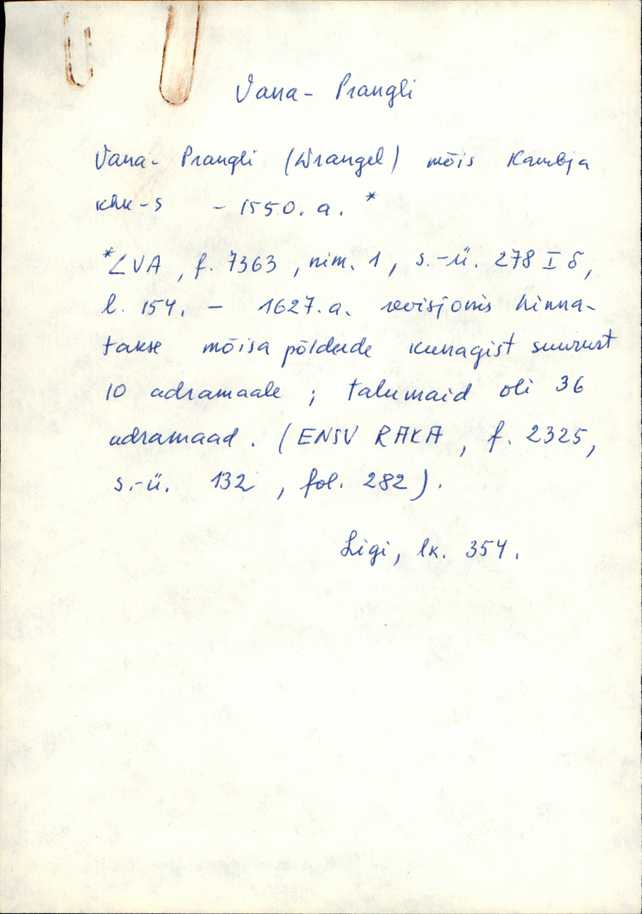 Vana - Prangli
Vana - Prangli (Wrangel) mõis Kambja
khk-s - 1550. a. *
*LVA, f. 7363, nim. 1, s.-ü. 278 I δ,
l. 154. - 1627. a. revisjonis hinna-
takse mõisa põldude kunagist suurust
10 adramaale ; talumaid oli 36
adramaad. (ENSV RAKA, f. 2325,
s.-ü. 132, fol. 282).
Ligi, lk. 354.